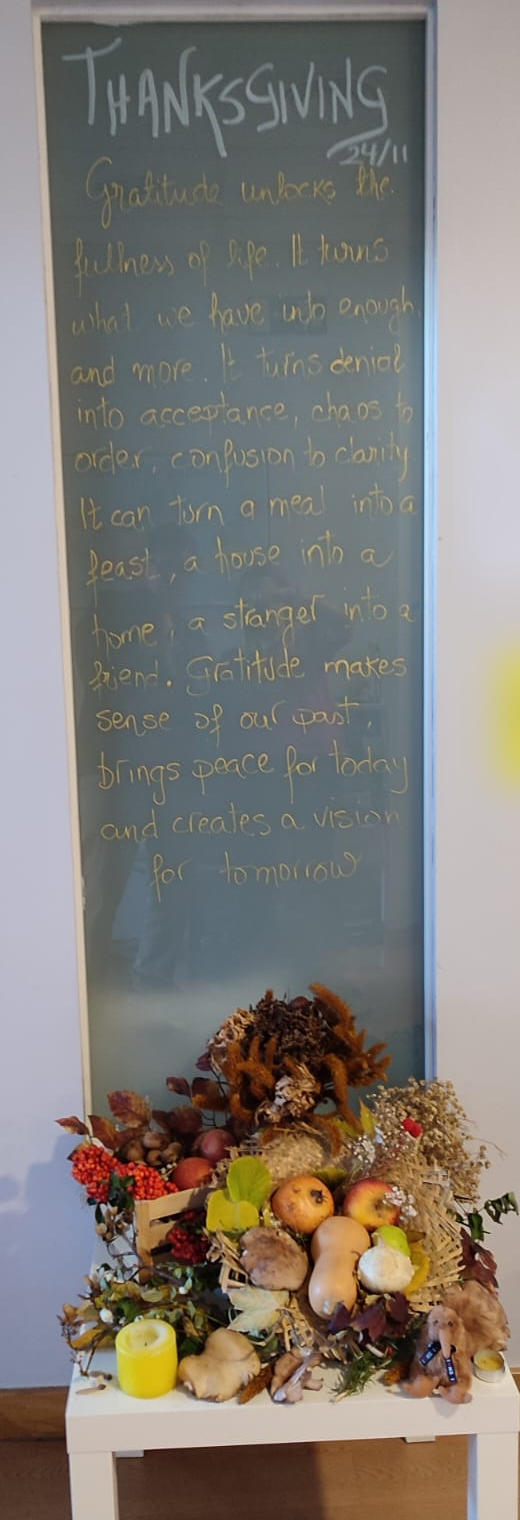 THANKSGIVING
24/11
Gratitude unlocks the
fullness of life. It turns
what we have into enough,
and more. It turns denial
into acceptance, chaos to
order, confusion to clarity
It can turn a meal into a
feast, a house into a
home, a stranger into a
friend. Gratitude makes
sense of our past,
brings peace for today
and creates a vision
for tomorrow